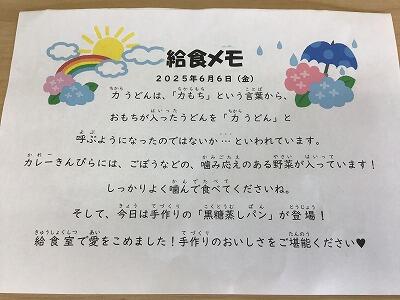 給食メモ
2025年6月6日（金）
力うどんは、「力もち」という言葉から、
おもちが入ったうどんを「力うどん」と
呼ぶようになったのではないか…といわれています。
カレーきんぴらには、ごぼうなどの、噛み応えのある野菜が入っています！
しっかりよく噛んで食べてくださいね。
そして、今日は手作りの「黒糖蒸しパン」が登場！
給食室で愛をこめました！手作りのおいしさをご堪能ください♥